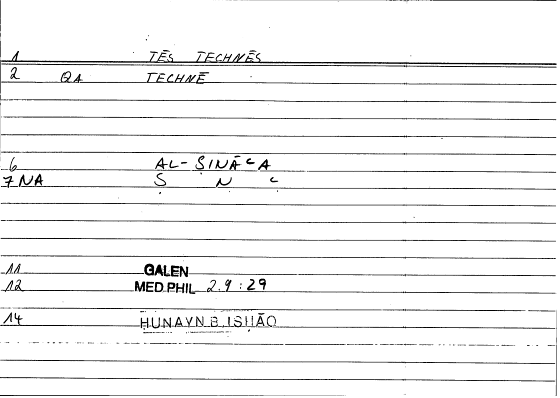 1 TĒS TECHNĒS
2 QA TECHNĒ
6 AL-ṢINĀꜤA
7 NA Ṣ N Ꜥ
11 GALEN
12 MED.PHIL 2.9:29
14 HUNAYN B. ISHĀQ